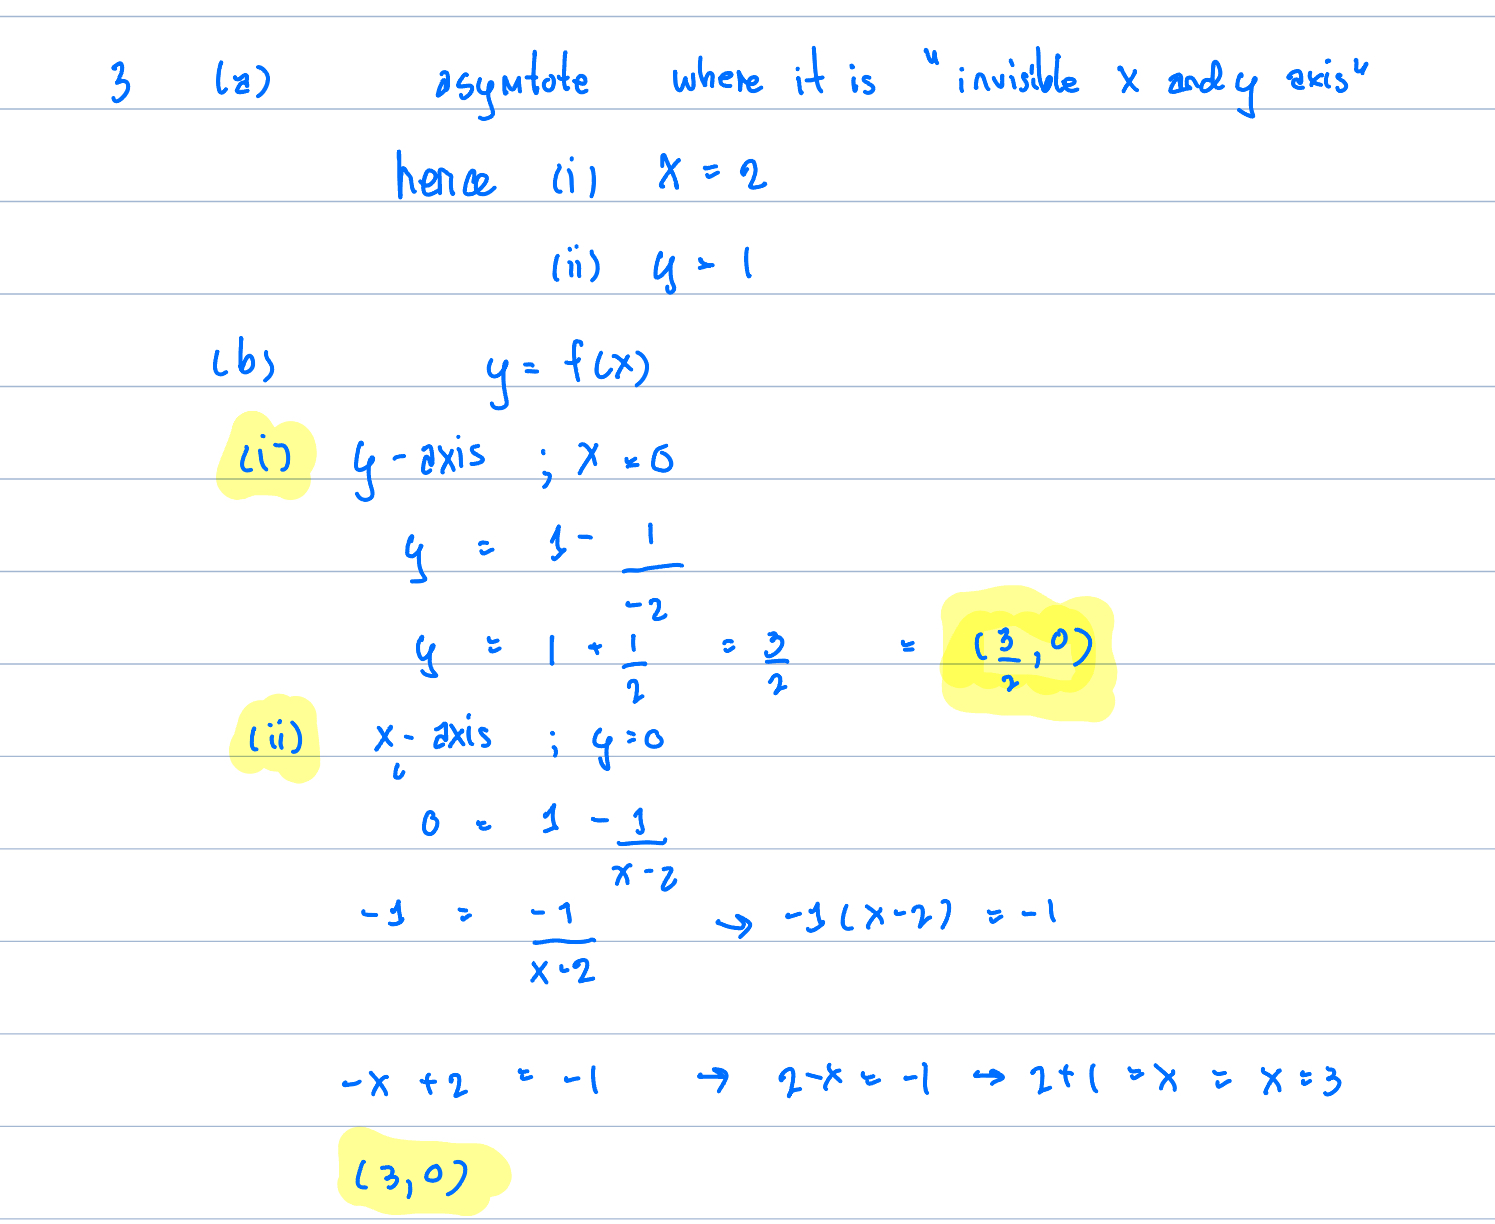 3 (a) asymtote where it is "invisible x and y axis"
hence (i) x = 2
(ii) y = 1
(b) y = f(x)
(i) y-axis ; x = 0
y = 1 - 1/-2
y = 1 + 1/2 = 3/2 = (3/2, 0)
(ii) x-axis ; y=0
0 = 1 - 1/x-2
-1 = -1/x-2 → -1(x-2) = -1
-x +2 = -1 → 2-x = -1 → 2+1 = x = x = 3
(3,0)